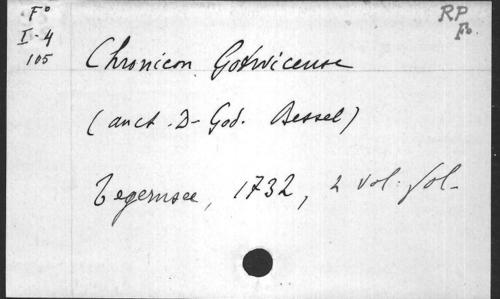 Fo
I-4
105
RP
Fo.
Chronicon Gotwicense
(auct. D- God. Bessel)
Tegernsee, 1732, 2 vol. fol-